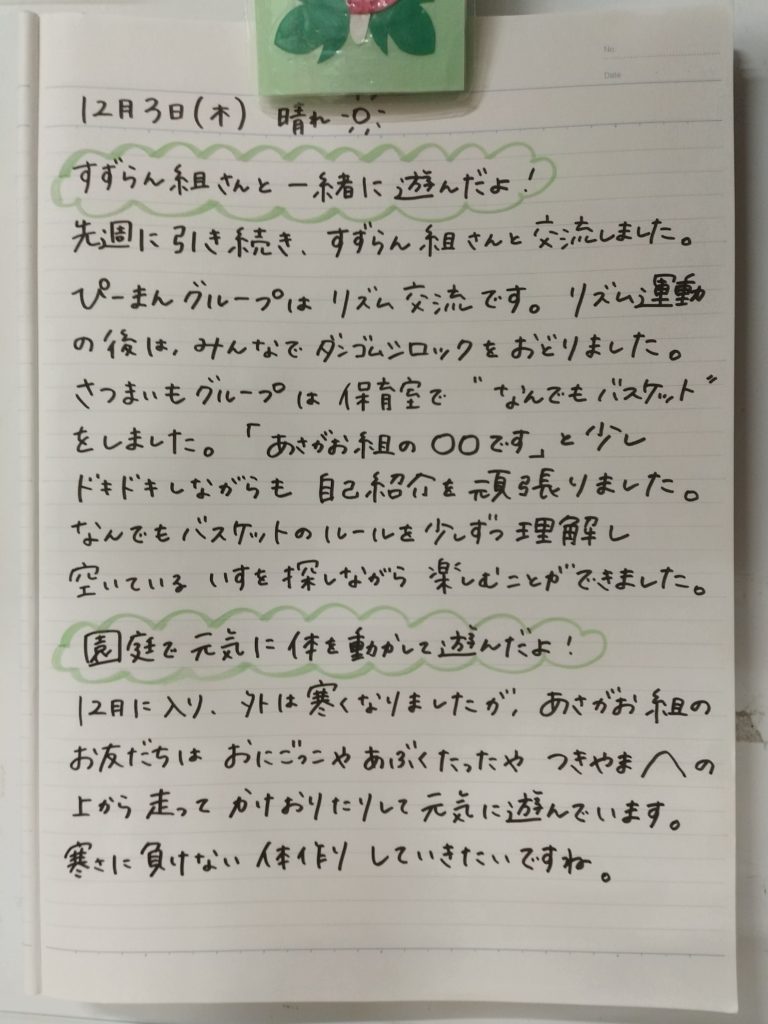 No.
Date
12月3日(木) 晴れ
すずらん組さんと一緒に遊んだよ!
先週に引き続き、すずらん組さんと交流しました。
ぴーまんグループはリズム交流です。リズム運動
の後は、みんなでダンゴムシロックをおどりました。
さつまいもグループは保育室で"なんでもバスケット"
をしました。「あさがお組の〇〇です」と少し
ドキドキしながらも自己紹介を頑張りました。
なんでもバスケットのルールを少しずつ理解し
空いているいすを探しながら楽しむことができました。
園庭で元気に体を動かして遊んだよ!
12月に入り、外は寒くなりましたが、あさがお組の
お友だちはおにごっこやあぶくたったやつきやまの
上から走ってかけおりたりして元気に遊んでいます。
寒さに負けない体作りしていきたいですね。